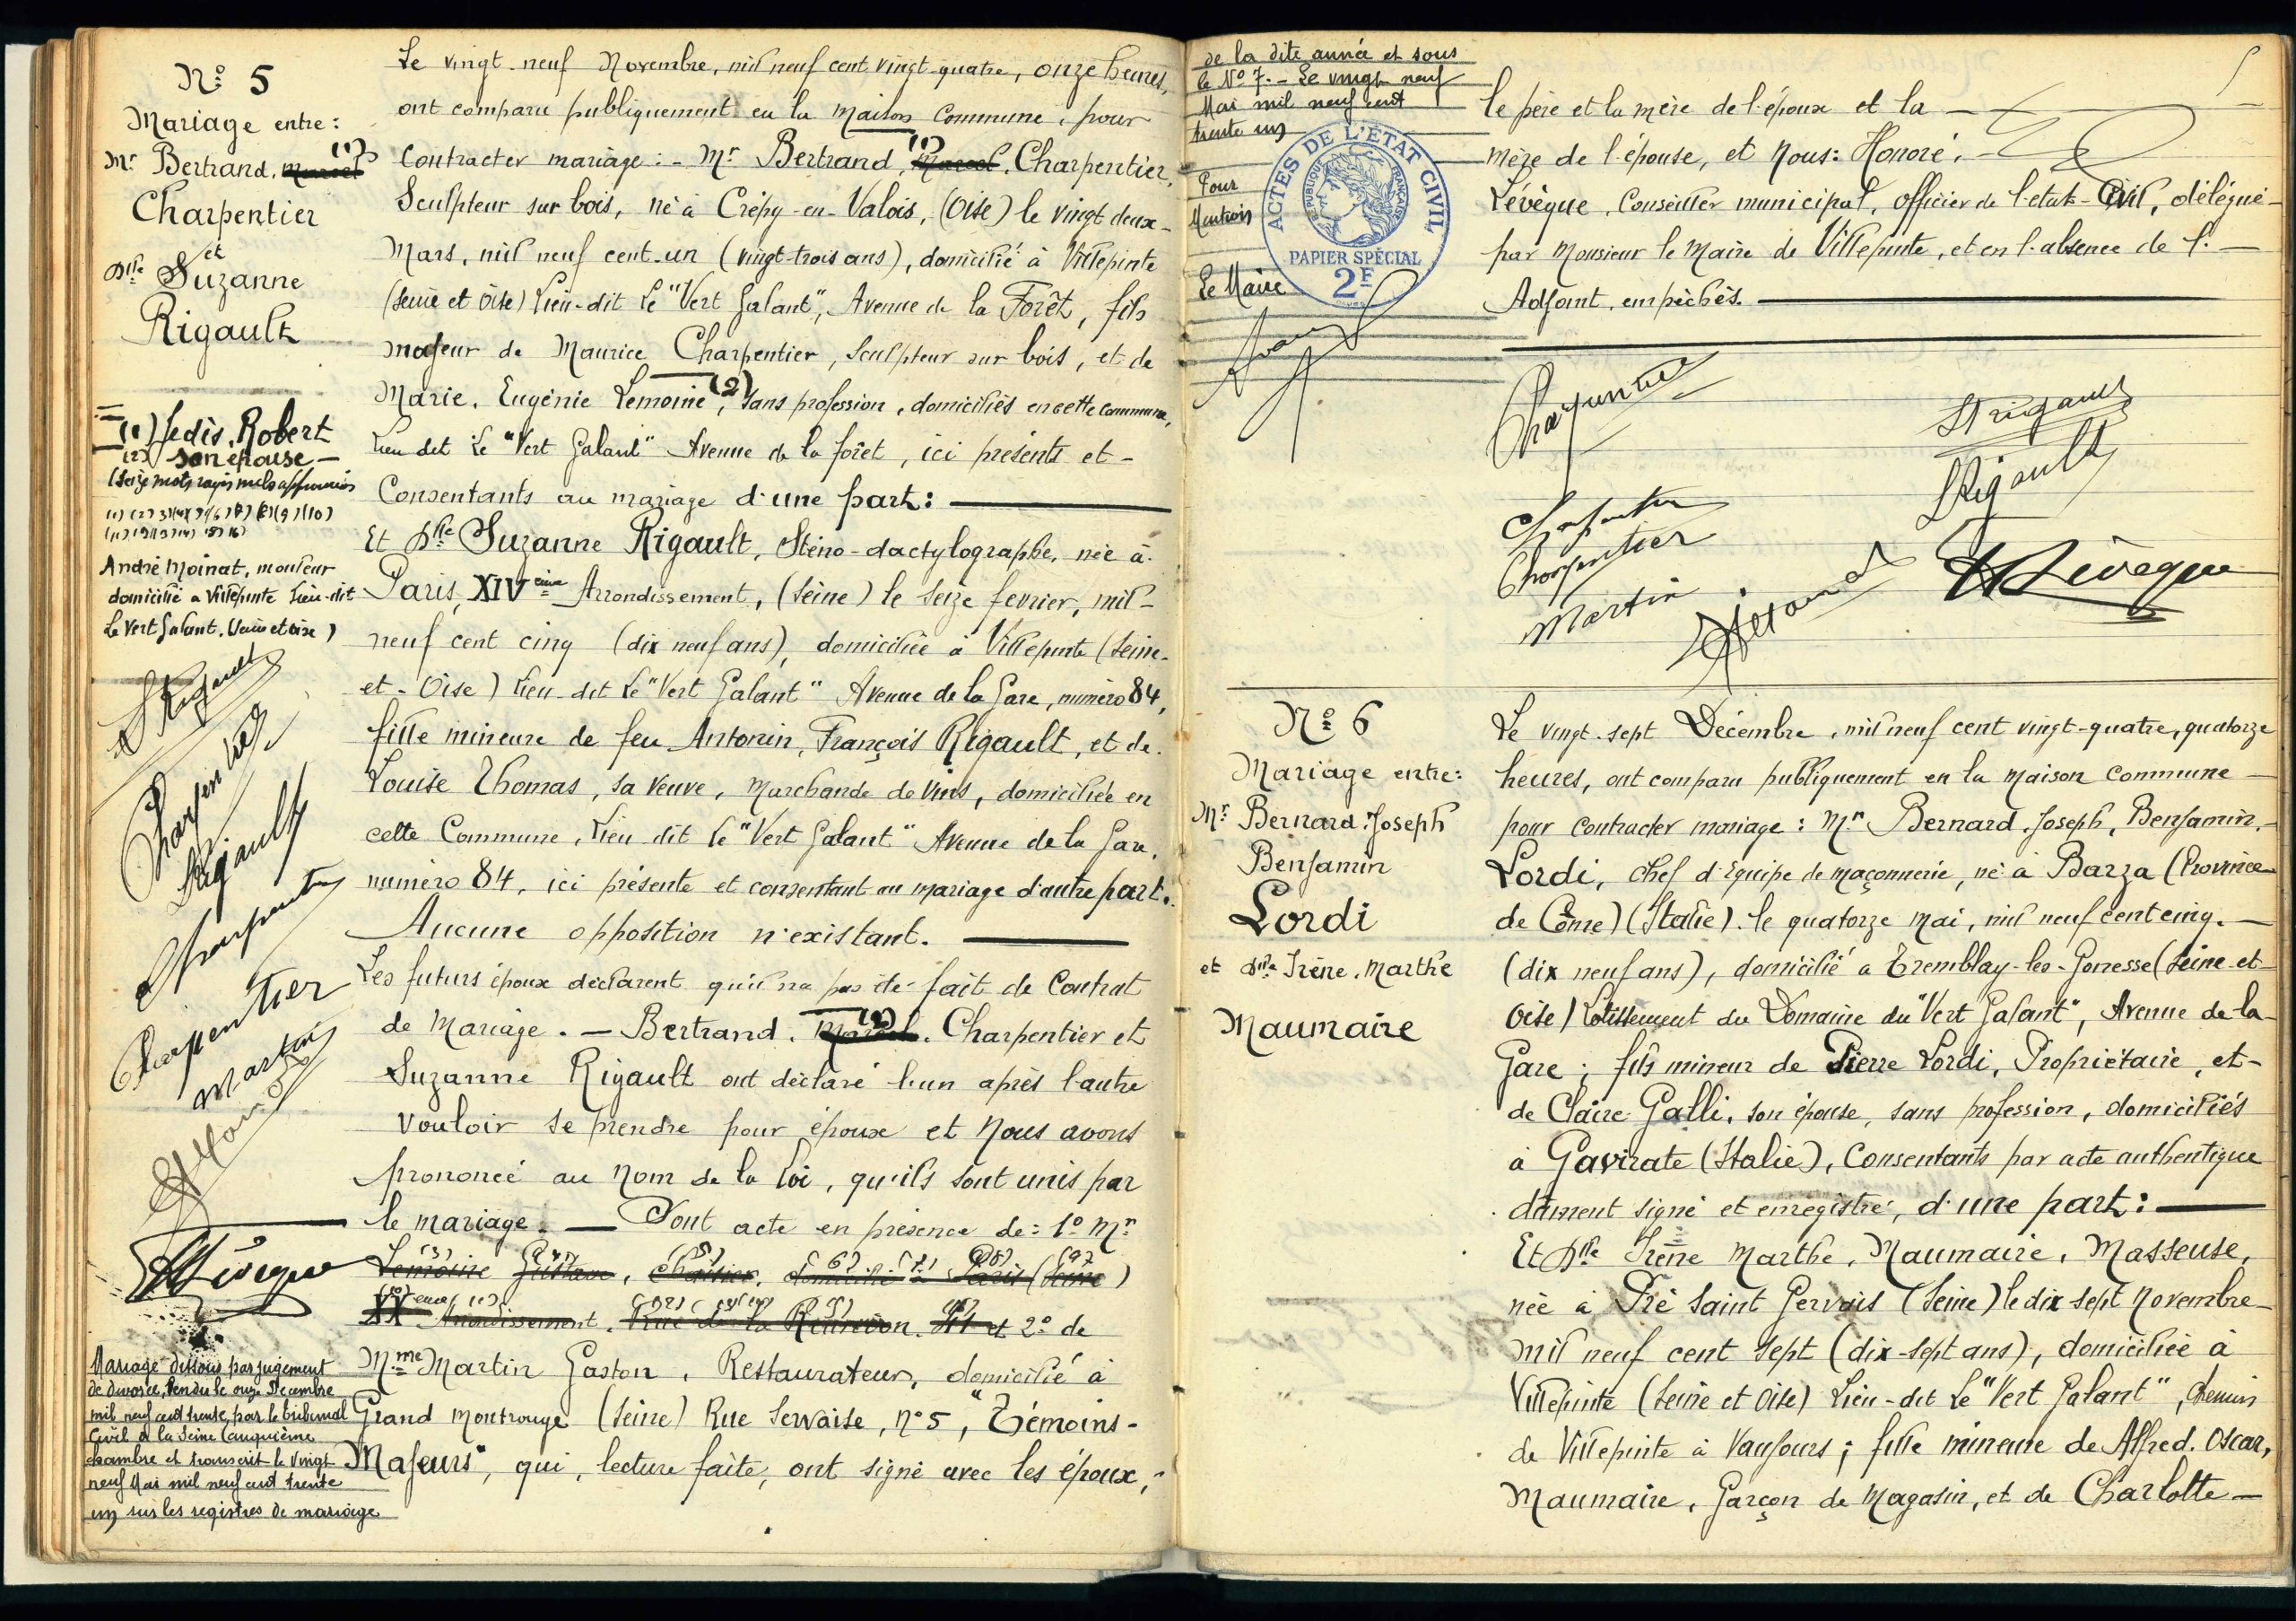 N° 5
Mariage entre:
Mr Bertrand, Marcel (1)
Charpentier
et
Dlle Suzanne
Rigault
(1) Je dis, Robert
(2) son épouse —
(Seize mots rayés nuls approuvés
(1) (2) 3) (4) (5) (6) (7) (8) (9) (10)
(11) (12) (13) (14) (15) 16)
André Moinat, mouleur
domicilié à Villepinte Lieu-dit
Le Vert Galant. (Seine et oise)
S Rigault
Charpentier
L Rigault
Charpentier
Charpentier
Martin
Lévêque
Mariage dissous par jugement
de divorce, Rendu le onze Décembre
mil neuf cent trente, par le tribunal
Civil de la Seine (cinquième
chambre et transcrit le Vingt
neuf Mai mil neuf cent trente
un sur les registres de mariage
Le vingt-neuf Novembre, mil neuf cent vingt-quatre, onze heures,
ont comparu publiquement en la maison commune, pour
Contracter mariage: - Mr Bertrand, Marcel (1), Charpentier,
Sculpteur sur bois, né à Crépy-en-Valois, (Oise) le vingt deux -
Mars, mil neuf cent-un (vingt-trois ans), domicilié à Villepinte
(Seine et Oise) Lieu-dit Le "Vert Galant", Avenue de la Forêt, fils
majeur de Maurice Charpentier, Sculpteur sur bois, et de
Marie, Eugénie Lemoine (2), sans profession, domiciliés en cette commune,
Lieu dit Le "Vert Galant" Avenue de la forêt, ici présents et -
Consentants au mariage d'une part: —
Et Dlle Suzanne Rigault, Sténo-dactylographe, née à
Paris, XIVème Arrondissement, (Seine) le Seize fevrier, mil -
neuf cent cinq (dix neuf ans), domiciliée à Villepinte (Seine-
et-Oise) Lieu-dit Le "Vert Galant" Avenue de la Gare, numéro 84,
fille mineure de feu Antonin, François Rigault, et de
Louise Thomas, sa veuve, Marchande de vins, domiciliée en
cette Commune, Lieu dit Le "Vert Galant" Avenue de la Gare,
numéro 84, ici présente et consentant au mariage d'autre part.
Aucune opposition n'existant. —
Les futurs époux déclarent qu'il n'a pas été fait de Contrat
de Mariage. — Bertrand, Marcel (1), Charpentier et
Suzanne Rigault ont déclaré l'un après l'autre
Vouloir se prendre pour époux et Nous avons
prononcé au Nom de la Loi, qu'ils sont unis par
le mariage. — Dont acte en présence de: 1° Mr
Lemoine (3) Gustave (4), (5), domicilié (6) à (7) Paris (8) (Seine (9))
XXème (10) Arrondissement (11), Rue de la Réunion et 2° de
Mme Martin Gaston, Restaurateur, domicilié à
Grand Montrouge (Seine) Rue Servaise, n° 5, "Témoins -
Majeurs", qui, lecture faite, ont signé avec les époux,
de la dite année et sous
le N° 7. - Le vingt neuf
Mai mil neuf cent
trente un
Pour
Mention
Le Maire
ACTES DE L'ÉTAT CIVIL
RÉPUBLIQUE FRANÇAISE
PAPIER SPÉCIAL
2F
le père et la mère de l'époux et la —
mère de l'épouse, et Nous: Honoré, —
Lévêque, Conseiller municipal, officier de l'etat-Civil, délégué -
par Monsieur le Maire de Villepinte, et en l'absence de l' —
Adjoint, empêchés. —
Charpentier
S Rigault
L Rigault
Charpentier
Charpentier
Martin
Lévêque
N° 6
Mariage entre:
Mr Bernard, Joseph
Benjamin
Lordi
et Dlle Irène, Marthe
Maumaire
Le vingt-sept Décembre, mil neuf cent vingt-quatre, quatorze
heures, ont comparu publiquement en la maison commune —
pour contracter mariage: Mr Bernard, Joseph, Benjamin, -
Lordi, chef d'équipe de maçonnerie, né à Barza (Province
de Côme) (Italie). le quatorze mai, mil neuf cent cinq. —
(dix neuf ans), domicilié à Tremblay-les-Gonesse (Seine-et
Oise) Lotissement du Domaine du "Vert Galant", Avenue de la
Gare; fils mineur de Pierre Lordi, Propriétaire, et -
de Claire Galli, son épouse, sans profession, domiciliés
à Gavirate (Italie), Consentants par acte authentique
dûment signé et enregistré, d'une part: —
Et Dlle Irène Marthe, Maumaire, Masseuse,
née à Pré Saint Gervais (Seine) le dix sept Novembre —
mil neuf cent sept (dix-sept ans), domiciliée à
Villepinte (Seine et Oise) Lieu-dit Le "Vert Galant", chemin
de Villepinte à Vaujours; fille mineure de Alfred, Oscar,
Maumaire, Garçon de Magasin, et de Charlotte —